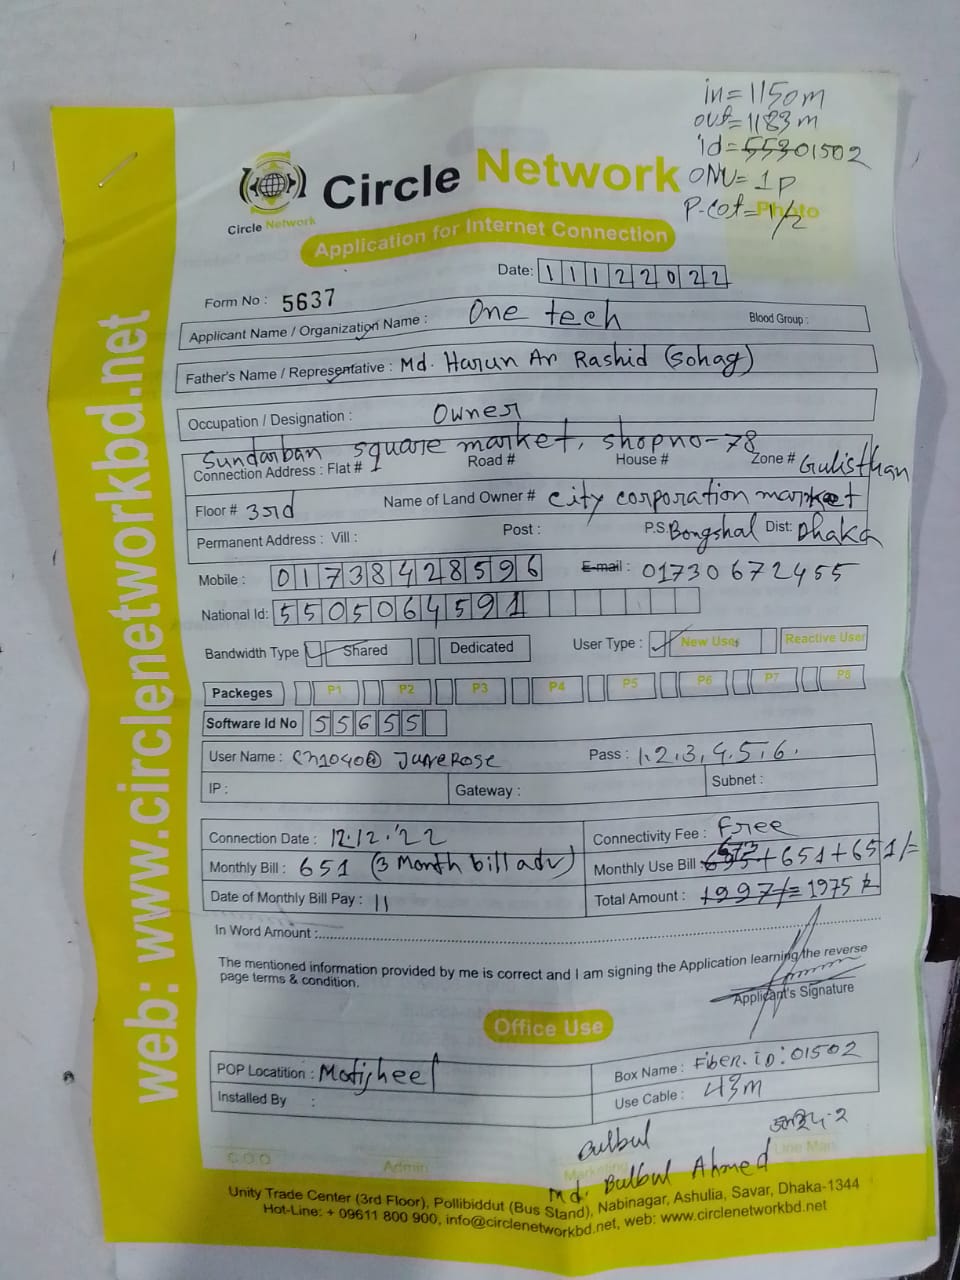 in=1150m
out=1183m
id=55301502
ONU=1P
P-cot=1/2
Photo
Circle Network
Circle Network
Application for Internet Connection
Date: 11122022
Form No : 5637
Applicant Name / Organization Name : One tech Blood Group :
Father's Name / Representative : Md. Harun Ar Rashid (Sohag)
Occupation / Designation : Owner
Sundarban square market, shopno-78
Connection Address : Flat # Road # House # Zone # Gulisthan
Floor # 3rd Name of Land Owner # city corporation market
Permanent Address : Vill : Post : P.S. Bongshal Dist: Dhaka
Mobile : 01738428596 E-mail : 01730672455
National Id: 5505064591
Bandwidth Type Shared Dedicated User Type : New User Reactive User
Packeges P1 P2 P3 P4 P5 P6 P7 P8
Software Id No 55655
User Name : Pass : 1.2.3,4.5.6.
IP : Gateway : Subnet :
Connection Date : 12.12.'22 Connectivity Fee : Free
Monthly Bill : 651 (3 Month bill adv) Monthly Use Bill 673+651+651/=
Date of Monthly Bill Pay : 11 Total Amount : 1997/= 1975/=
In Word Amount :
The mentioned information provided by me is correct and I am signing the Application learning the reverse
page terms & condition.
Applicant's Signature
Office Use
POP Locatition : Motijheel Box Name : Fiber.iD:01502
Installed By : Use Cable : 43m
Bulbul
C.O.O Admin Marketing Line Man
Md. Bulbul Ahmed
Unity Trade Center (3rd Floor), Pollibiddut (Bus Stand), Nabinagar, Ashulia, Savar, Dhaka-1344
Hot-Line: + 09611 800 900, info@circlenetworkbd.net, web: www.circlenetworkbd.net
web: www.circlenetworkbd.net